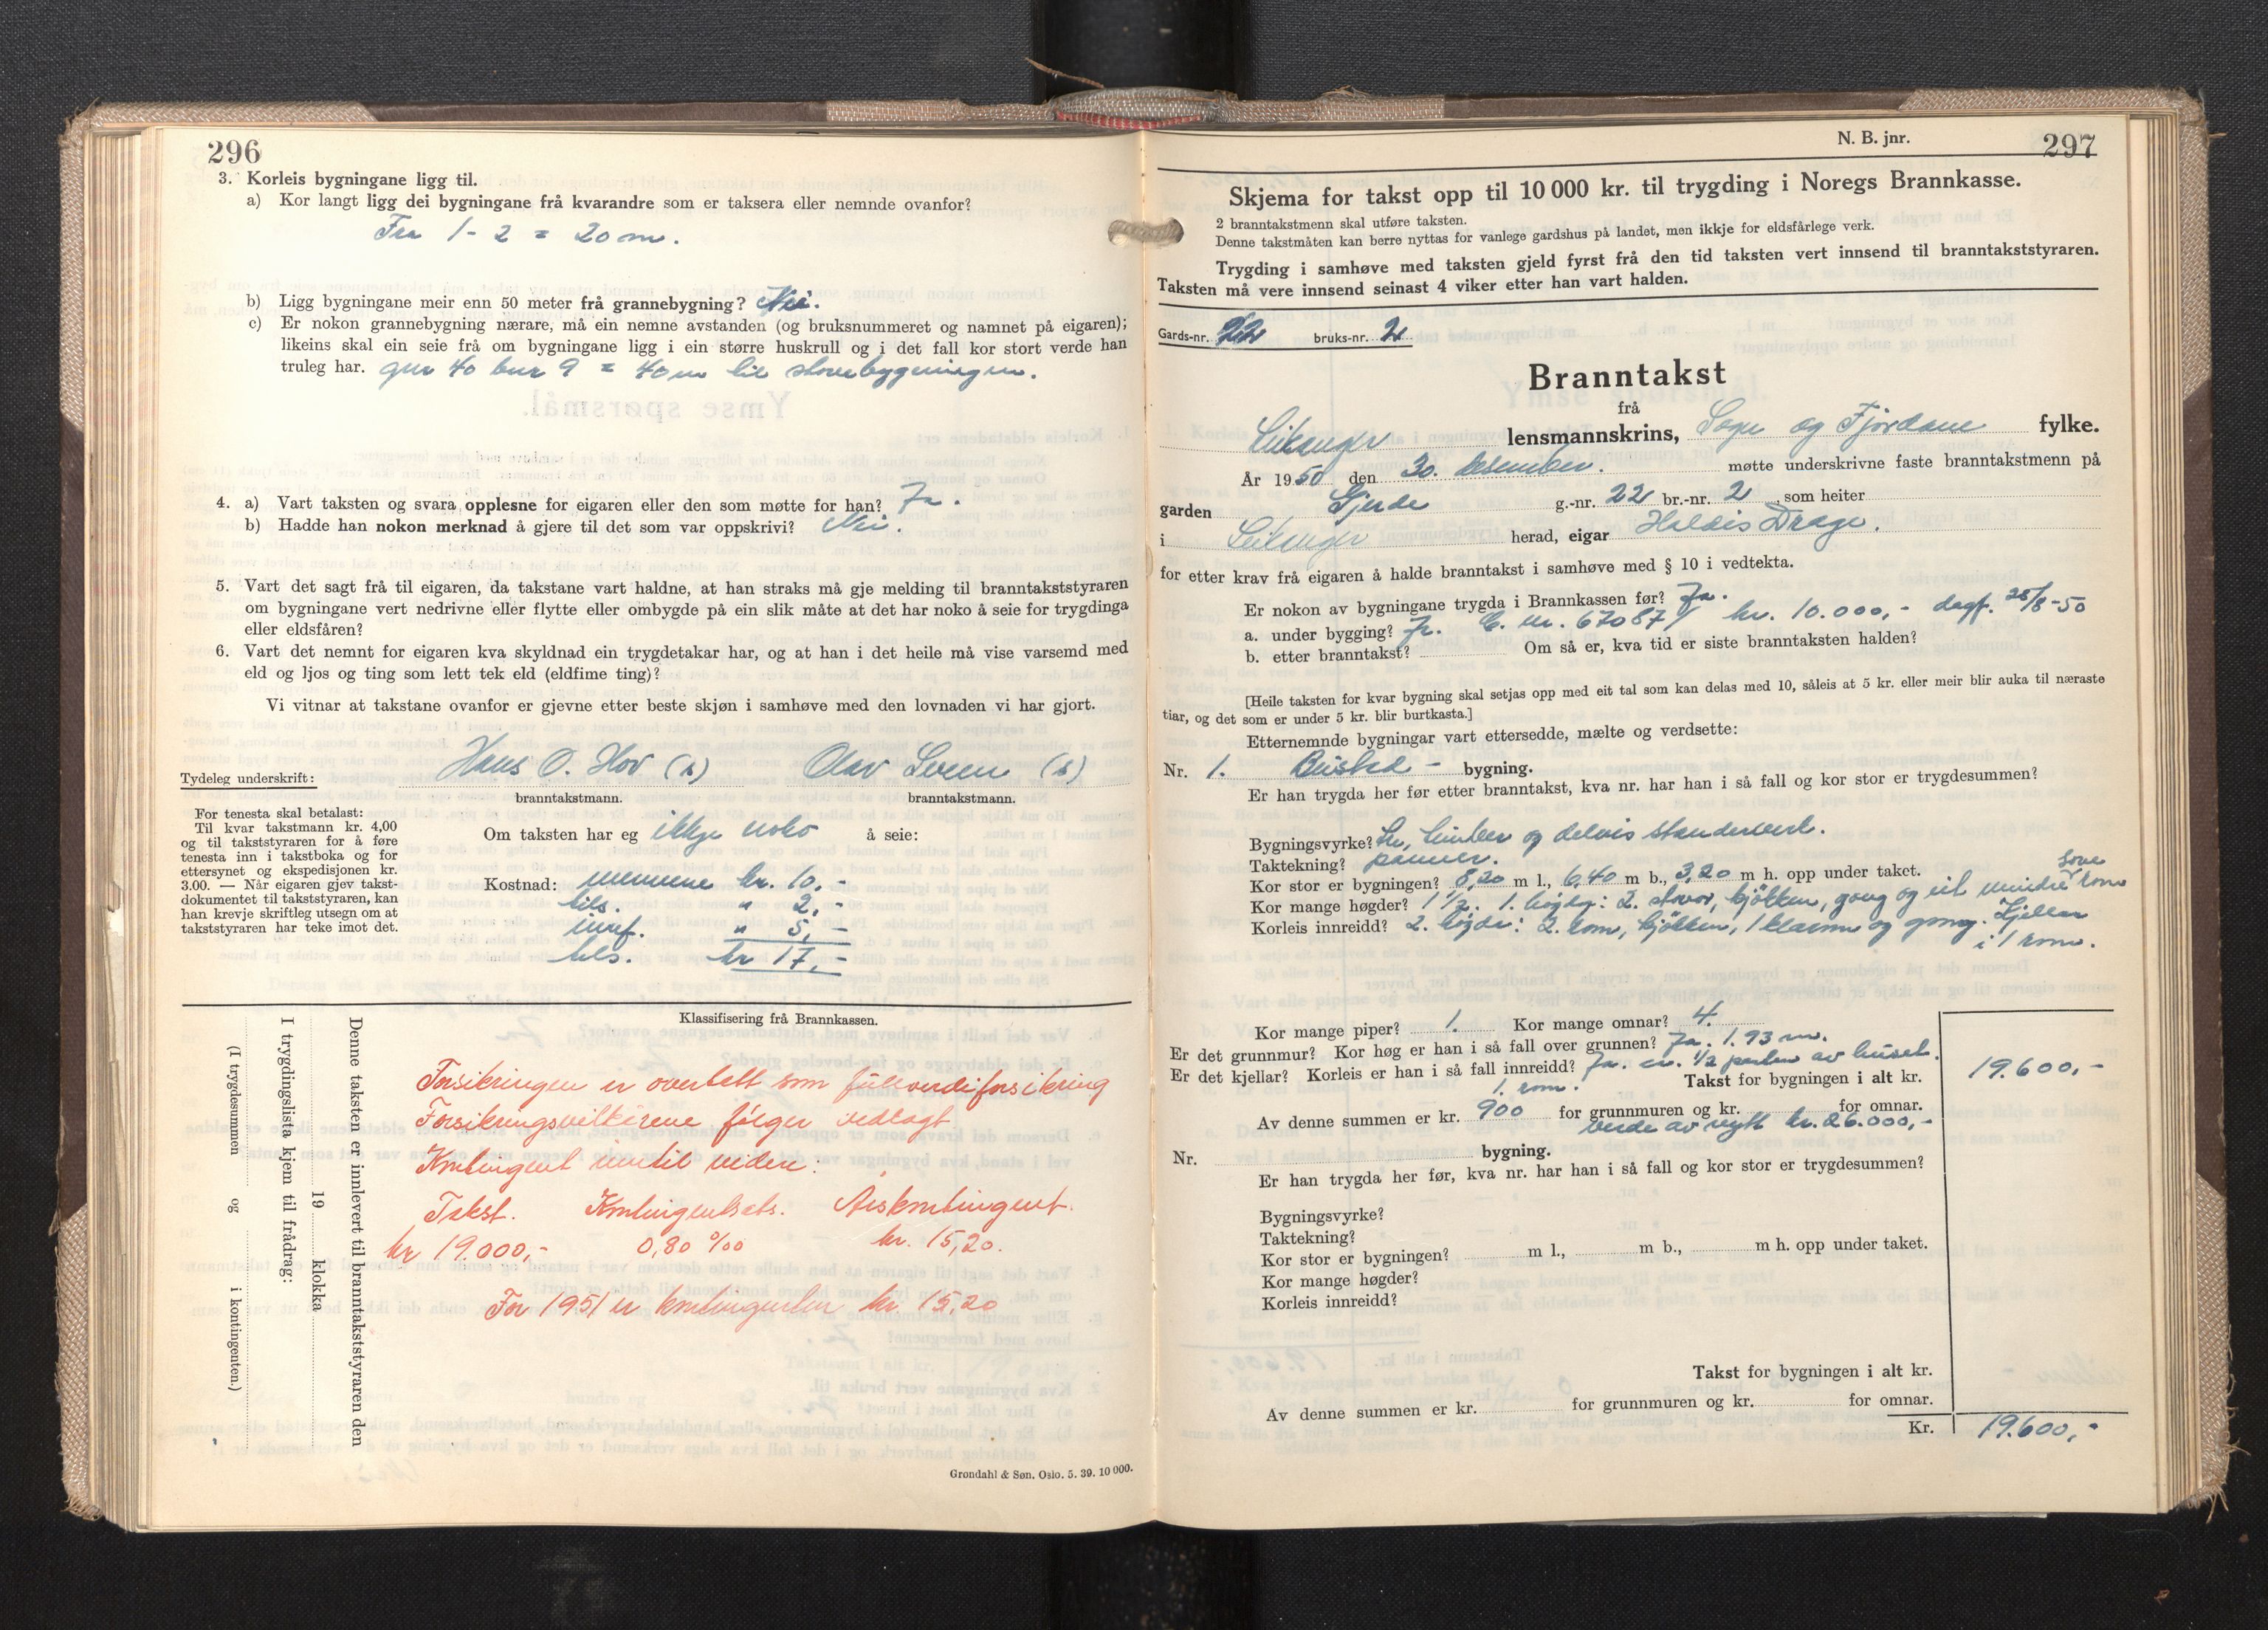 296
3. Korleis bygningane ligg til.
a) Kor langt ligg dei bygningane frå kvarandre som er taksera eller nemnde ovanfor?
Fra 1-2 = 20 m.
b) Ligg bygningane meir enn 50 meter frå grannebygning? Nei.
c) Er nokon grannebygning nærare, må ein nemne avstanden (og bruksnummeret og namnet på eigaren);
likeins skal ein seie frå om bygningane ligg i ein større huskrull og i det fall kor stort verde han
truleg har. gnr 40 bnr 9 = 40 m til stovebygningen.
4. a) Vart taksten og svara opplesne for eigaren eller den som møtte for han? Ja.
b) Hadde han nokon merknad å gjere til det som var oppskrivi? Nei.
5. Vart det sagt frå til eigaren, da takstane vart haldne, at han straks må gje melding til branntakststyraren
om bygningane vert nedrivne eller flytte eller ombygde på ein slik måte at det har noko å seie for trygdinga
eller eldsfåren?
6. Vart det nemnt for eigaren kva skyldnad ein trygdetakar har, og at han i det heile må vise varsemd med
eld og ljos og ting som lett tek eld (eldfime ting)?
Vi vitnar at takstane ovanfor er gjevne etter beste skjøn i samhøve med den lovnaden vi har gjort.
Tydeleg underskrift: Hans O. Hov (s) Olav (s)
branntakstmann. branntakstmann.
For tenesta skal betalast:
Til kvar takstmann kr. 4,00
og til takststyraren for å føre
tenesta inn i takstboka og for
ettersynet og ekspedisjonen kr.
3.00. — Når eigaren gjev takst-
dokumentet til takststyraren, kan
han krevje skriftleg utsegn om at
takststyraren har teke imot det.
Om taksten har eg ikkje noko å seie:
Kostnad: mennene kr. 10,-
tils. " 2,-
innf. " 5,-
tils. kr 17,-
Klassifisering frå Brannkassen.
Denne taksten er innlevert til branntakststyraren den
19 klokka
I trygdingslista kjem til frådrag:
(I trygdesummen og i kontingenten.)
Forsikringen er overtatt som fullverdiforsikring
Forsikringsvilkårene følger vedlagt
Kontingent inntil videre:
Takst. Kontingentsats. Årskontingent.
kr 19.000,- 0,80 ‰ kr. 15,20.
For 1951 er kontingenten kr. 15,20
Grøndahl & Søn. Oslo. 5. 39. 10 000.
N. B. jnr.
297
Skjema for takst opp til 10 000 kr. til trygding i Noregs Brannkasse.
2 branntakstmenn skal utføre taksten.
Denne takstmåten kan berre nyttas for vanlege gardshus på landet, men ikkje for eldsfårlege verk.
Trygding i samhøve med taksten gjeld fyrst frå den tid taksten vert innsend til branntakststyraren.
Taksten må vere innsend seinast 4 viker etter han vart halden.
Gards-nr. 22 bruks-nr. 2
Branntakst
frå
Leikanger lensmannskrins, Sogn og Fjordane fylke.
År 1950 den 30. desember. møtte underskrivne faste branntakstmenn på
garden Gjerde g.-nr. 22 br.-nr. 2, som heiter
i Leikanger herad, eigar Haldis Drage.
for etter krav frå eigaren å halde branntakst i samhøve med § 10 i vedtekta.
Er nokon av bygningane trygda i Brannkassen før? Ja.
a. under bygging? Ja. nr. 67087 kr. 10.000,- dagf. 28/8-50
b. etter branntakst? Om så er, kva tid er siste branntaksten halden?
[Heile taksten for kvar bygning skal setjas opp med eit tal som kan delas med 10, såleis at 5 kr. eller meir blir auka til næraste
tiar, og det som er under 5 kr. blir burtkasta.]
Etternemnde bygningar vart ettersedde, mælte og verdsette:
Nr. 1. Bustad - bygning.
Er han trygda her før etter branntakst, kva nr. har han i så fall og kor stor er trygdesummen?
Bygningsvyrke? Tre, timber og delvis standerverk.
Taktekning? panner.
Kor stor er bygningen? 8,20 m l., 6,40 m b., 3,20 m h. opp under taket.
Kor mange høgder? 1 1/2. 1. høgda: 2. stover, kjökken, gang og eit mindre sove rom
Korleis innreidd? 2. høgda: 2. rom, kjökken, 1 klærom og gang. Kjellar
i 1 rom.
Kor mange piper? 1. Kor mange omnar? 4.
Er det grunnmur? Kor høg er han i så fall over grunnen? Ja. 1.93 m.
Er det kjellar? Korleis er han i så fall innreidd? Ja. 1/2 parten av huset.
1. rom. Takst for bygningen i alt kr. 19.600,-
Av denne summen er kr. 900 for grunnmuren og kr. for omnar.
verde av nytt kr. 26.000,-
Nr. bygning.
Er han trygda her før, kva nr. har han i så fall og kor stor er trygdesummen?
Bygningsvyrke?
Taktekning?
Kor stor er bygningen? m l., m b., m h. opp under taket.
Kor mange høgder?
Korleis innreidd?
Takst for bygningen i alt kr.
Av denne summen er kr. for grunnmuren og kr. for omnar.
Kr. 19.600,-